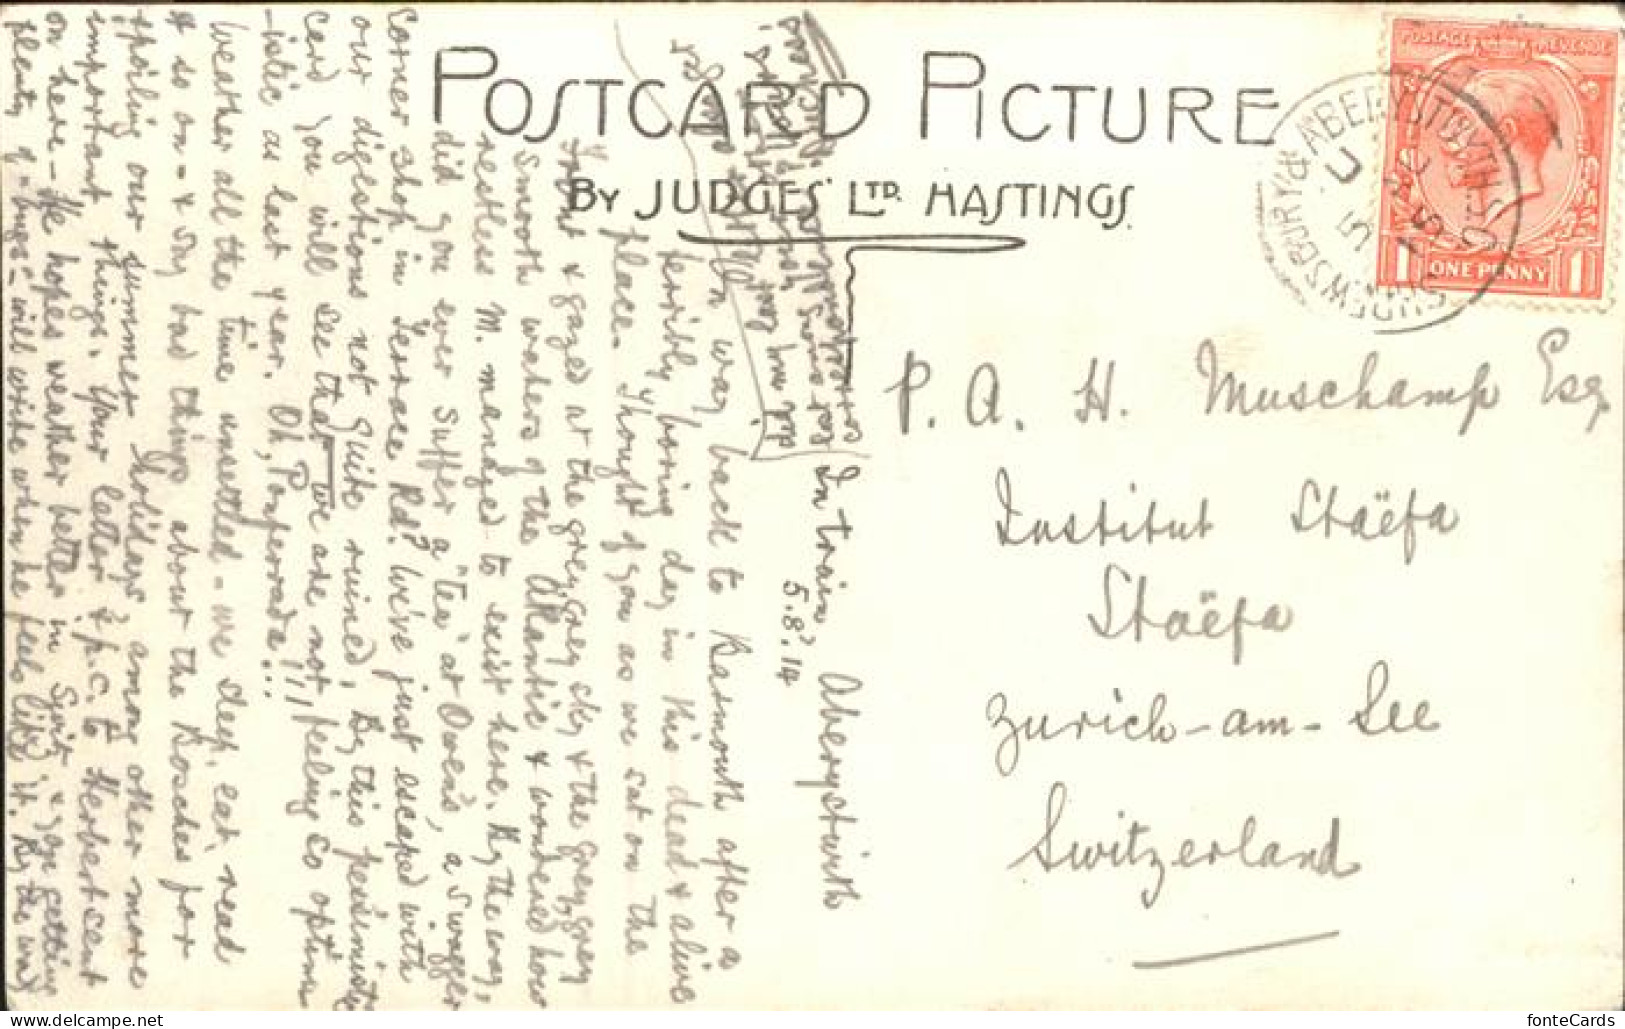 POSTCARD PICTURE
BY JUDGES' LTD. HASTINGS.
POSTAGE REVENUE
1 ONE PENNY 1
ABERYSTWYTH
SHREWSBURY
P. A. H. Muschamp Esq
Institut Stäefa
Stäefa
Zurich-am-See
Switzerland
In train Aberystwith
5.8.14
On way back to Barmouth after a
terribly boring day in this dead & alive
place. Thought of you as we sat on the
front & gazed at the grey, grey sky & the grey, grey
smooth waters of the Atlantic & wondered how
restless M. managed to exist here. By the way,
did you ever suffer a "tea" at Owen's, a swagger
corner shop in Terrace Rd? We've just escaped with
our digestions not quite ruined. By this pessimistic
card you will see that we are not feeling so optim-
-istic as last year. Oh, Ponferrada!!!
Weather all the time unsettled - we sleep, eat, read
& so on - & say bad things about the Bosches for
spoiling our summer holidays, among other more
important things. Your letter & p.c. to Herbert sent
on here - He hopes weather better in Switz & you getting
plenty of "bugs" - will write when he feels like it. By the way
did you